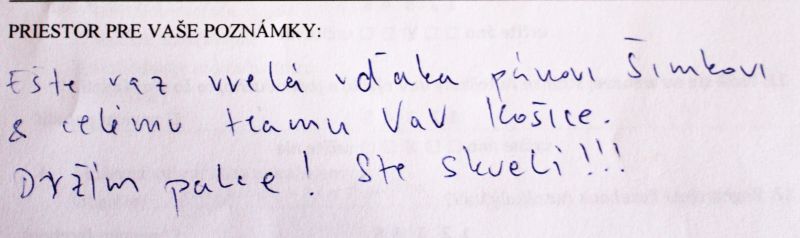 PRIESTOR PRE VAŠE POZNÁMKY:
Ešte raz vrelá vďaka pánovi Šimkovi
a celému teamu VaV Košice.
Držím palce! Ste skvelí!!!